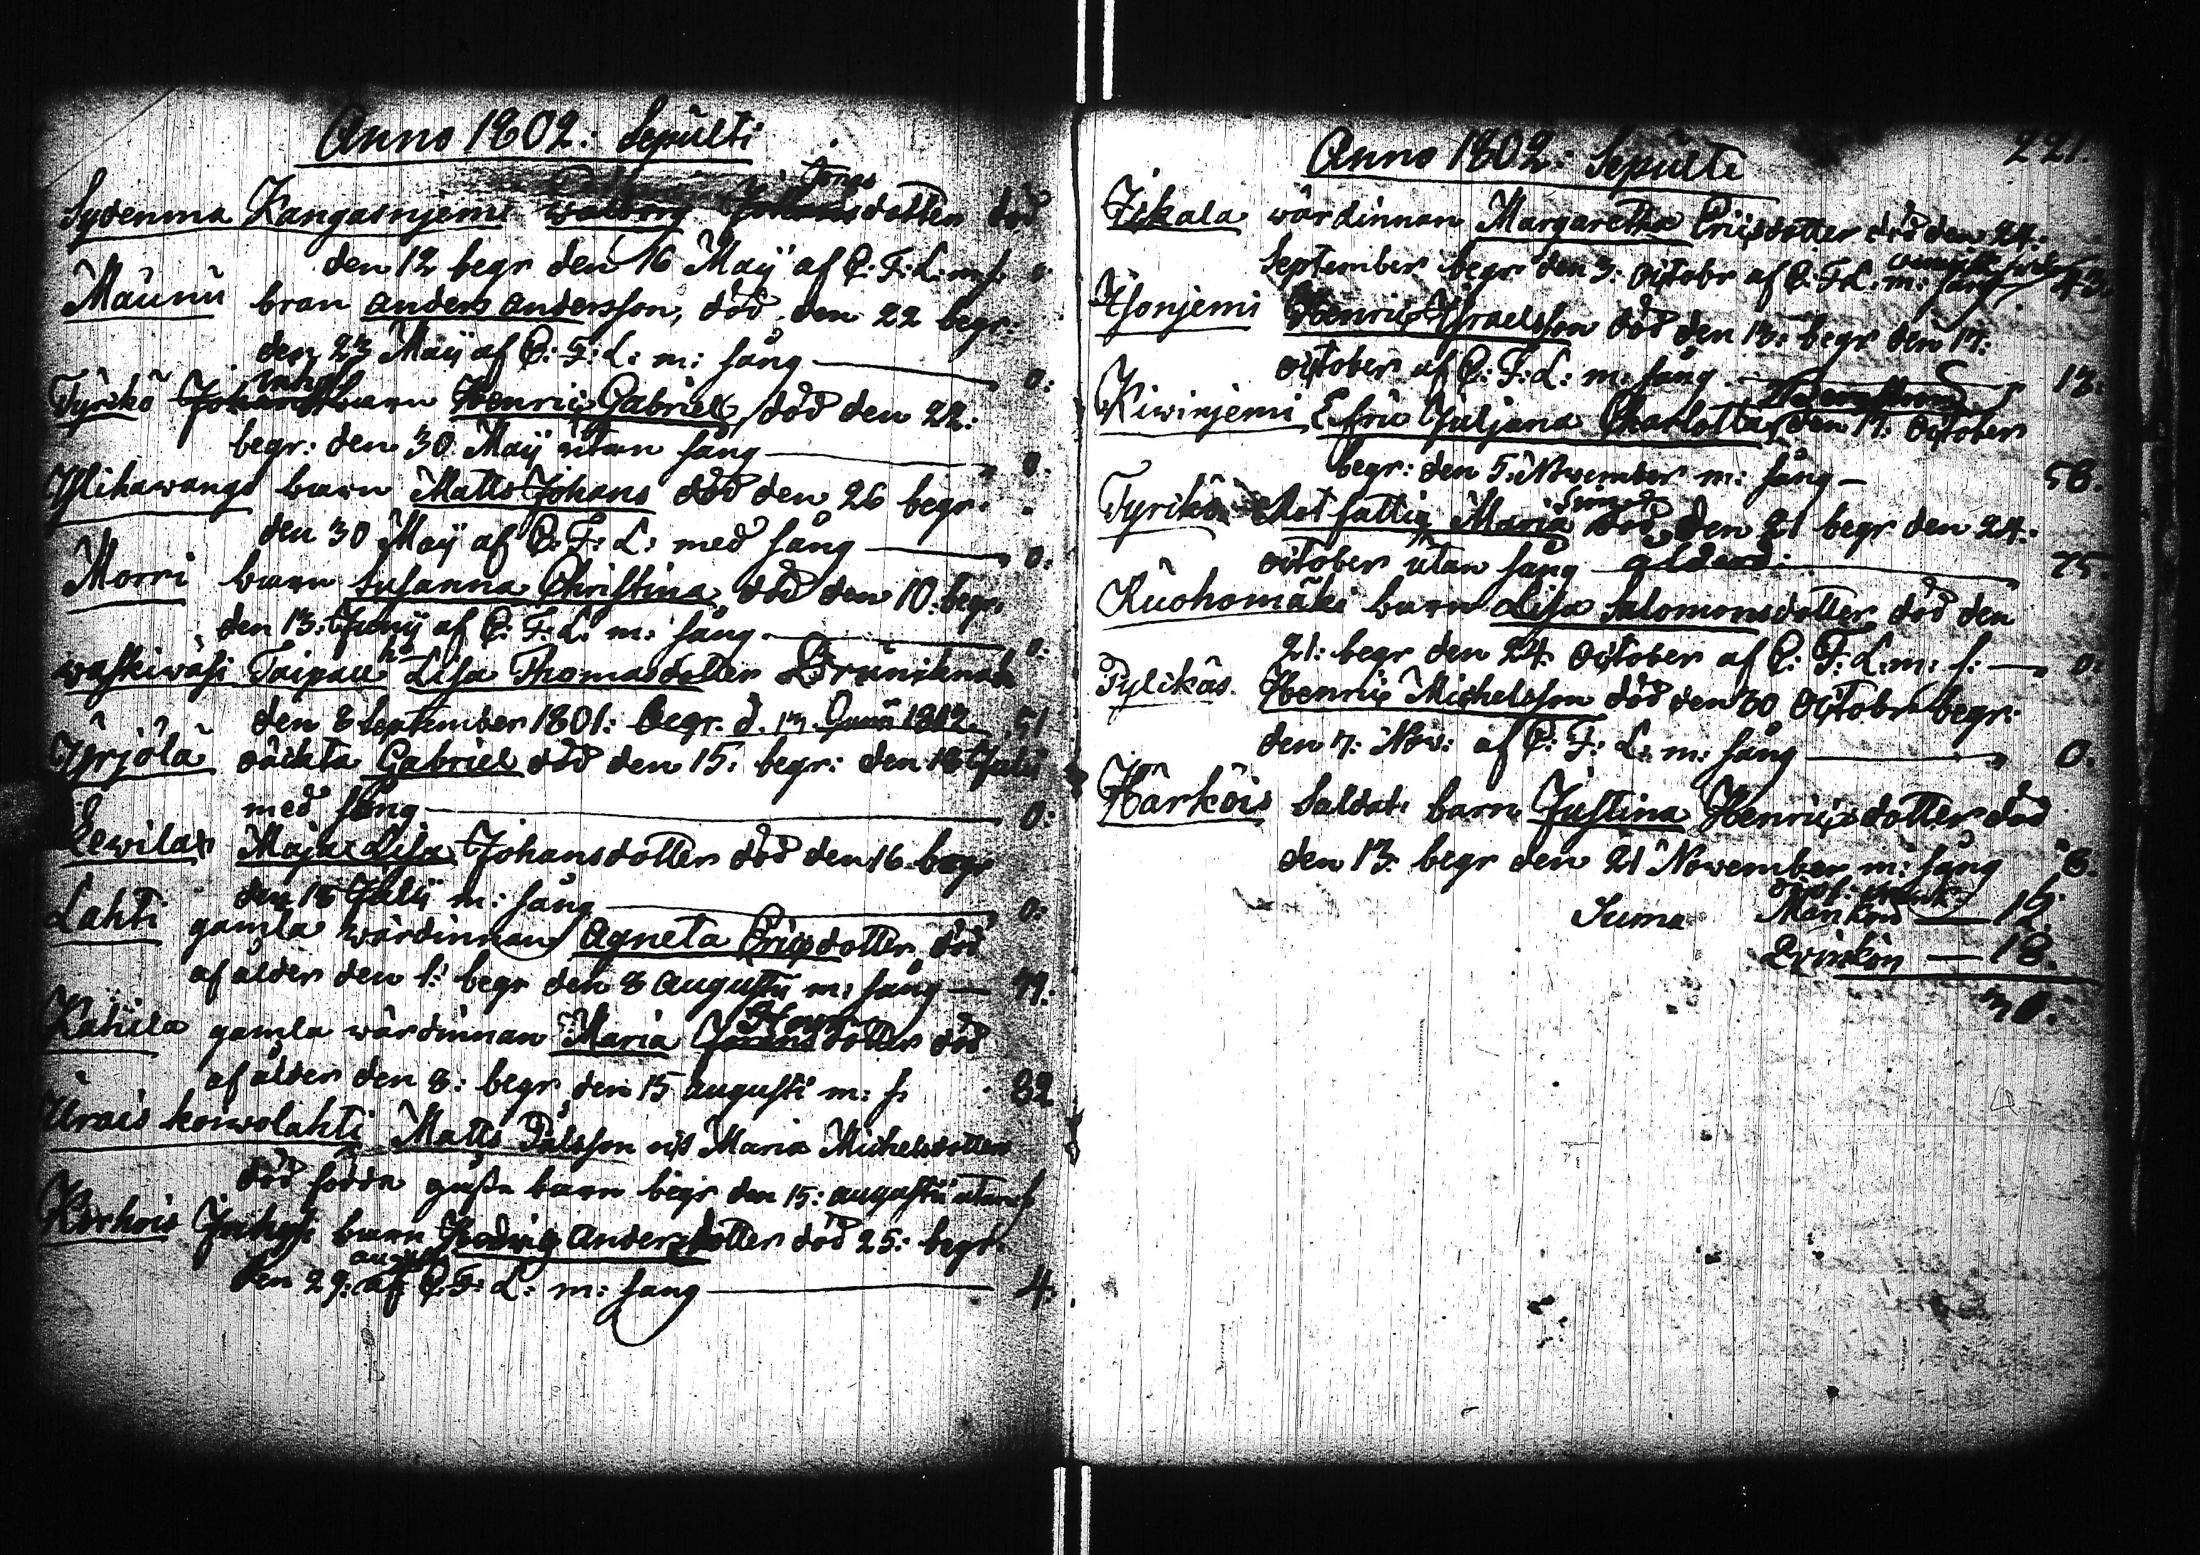 Anno 1802: Sepulti
Sydenma Kangasnjemi walborg Jonas dotter död
den 12 begr den 16 Maÿ af C: F: L: m: s. 0
Maunu bran anders andersson, död den 22 begr:
den 23 Maÿ af C: F: L: m: sång 0:
Tyrikö Inhs barn Henric Gabriel död den 22:
begr: den 30 Maÿ utan sång 0:
Ylikawangs barn Matts Johans död den 26 begr.
den 30 Maÿ af C: F: L: med sång 0:
Morri barn susanna Christina död den 10: begr.
den 13: Junÿ af C: F: L: m: sång 0:
waskiwäsi Taipale Lisa Thomasdotter Drunknade
den 8 September 1801: begr. d. 13 Junii 1802 51
Yrjölä oäckta Gabriel död den 15. begr: den 18 Julii
med sång 0:
Lewilax Maja Lisa Johansdotter död den 16 begr
den 18 Julÿ m: sång 0:
Lahti gamla wärdinnan Agneta Ericsdotter död
af ålder den 1: begr den 8 augusti m: sång 79:
Kahila gamla wärdinnan Maria dotter död
af ålder den 8: begr den 15 augusti m: s. 82
Urais korwolahti Matts Pålsson o: Maria Michelsdotter
död födda barn begr den 15: augusti utan s
Korhois Inhys: barn Hedwig andersdotter död 25: begr:
den 29: august af C: F: L: m: sång 4:
Anno 1802: Sepulti 221.
Iskala wärdinnan Margaretha Ericsdotter död den 24:
September begr den 3: octobr af C: F: L: m: sång 43.
Ihonjemi Henric Israelsson död den 13: begr den 17:
october af C: F: L: m: sång 13:
Kiwinjemi fru Juljana Charlotta den 17: October
begr: den 5: Nowember m: sång 58.
Tyrikö Ret fattig Maria Simsd död den 21 begr den 24:
october utan sång alderd: 75.
Kuohomäki barn Lisa Salomonsdotter död den
21: begr den 24: October af C: F: L: m: s: 0:
Pylikäs. Henric Michelsson död den 30 Octobr begr:
den 7: Nov: af C: F: L: m: sång 0.
Härköis Saldat: barn Justina Henricsdotter död
den 13: begr den 21 Nowember m: sång 8.
Suma Mankön 12.
Qvinkön 18.
30.